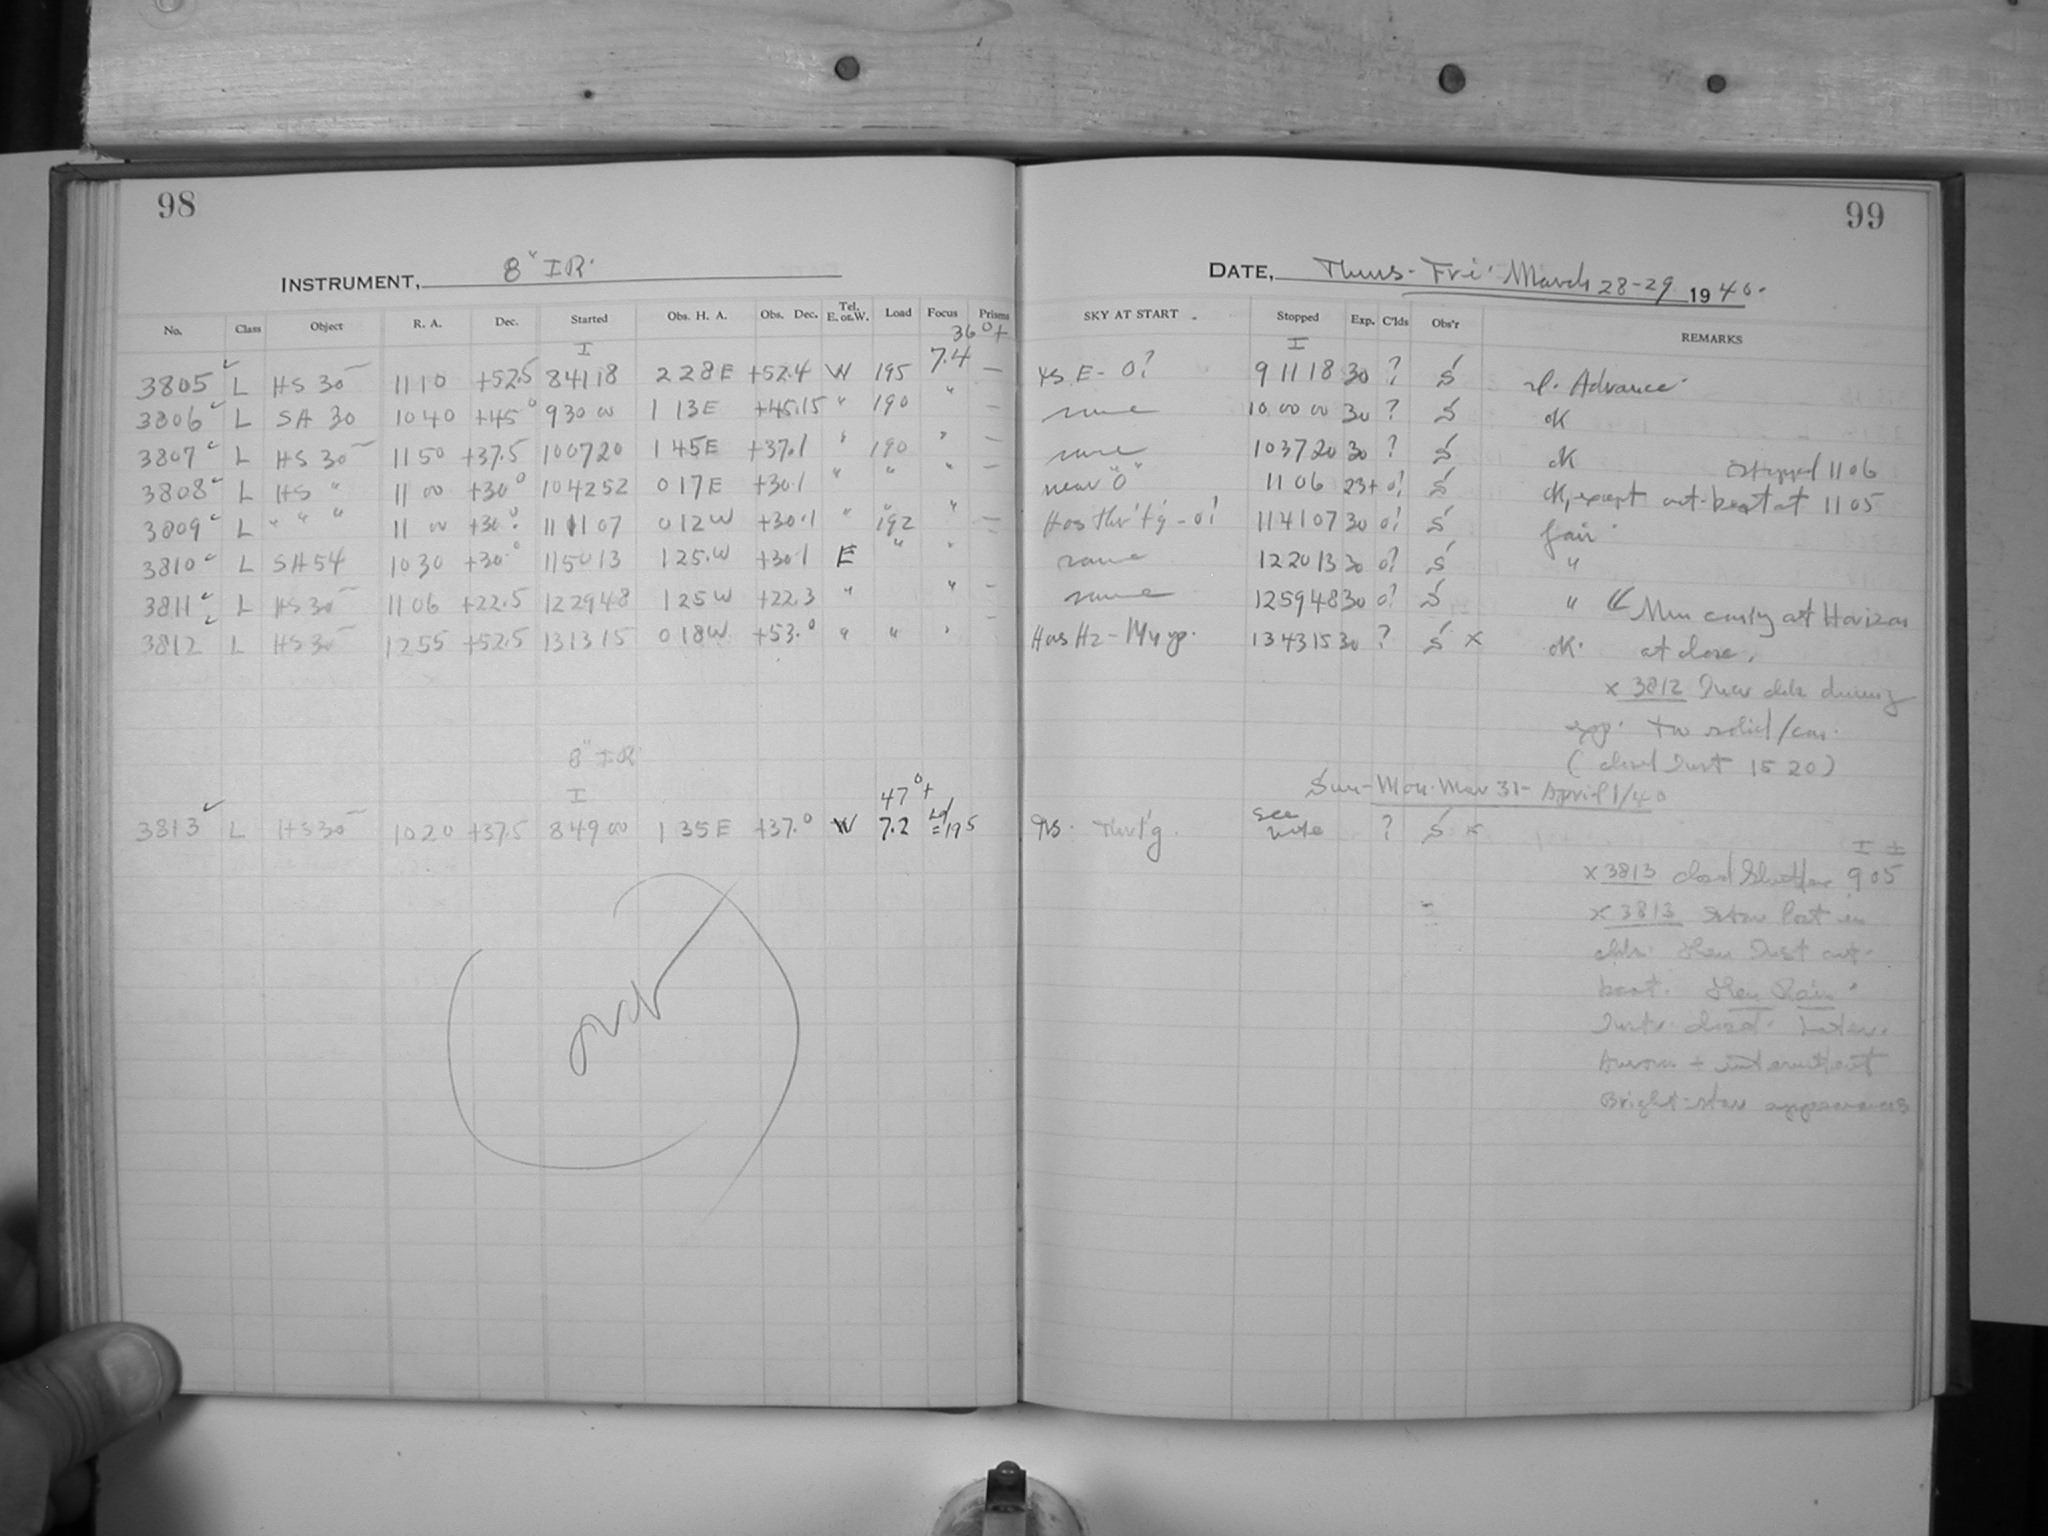 98
99
INSTRUMENT, 8" I R.
DATE, Thurs - Fri. March 28-29 1940.
No. Class Object R. A. Dec. Started Obs. H. A. Obs. Dec. Tel. E. or W. Load Focus Prisms SKY AT START Stopped Exp. C'lds Obs'r REMARKS
I 36°+ I
3805 L HS 30 1110 +52.5 84118 2 28 E +52.4 W 195 7.4 — E - 0? 9 11 18 30 ? S Advance
3806 L SA 30 1040 +45° 930 00 1 13E +45.15 " 190 — same 10 00 00 30 ? S OK
3807 L HS 30 1150 +37.5 100720 1 45E +37.1 " 190 " — same 103720 30 ? S OK Stopped 1106
3808 L HS " 11 00 +30° 104252 0 17E +30.1 " " " — near "0" 11 06 23+ 0? S OK, except out-beat at 1105
3809 L " " " 11 00 +30° 111107 0 12W +30.1 " 192 " — Has - 0? 114107 30 0? S fair
3810 L SA 54 1030 +30° 115013 1 25.W +30.1 E " " same 122013 30 0? S "
3811 L HS 30 1106 +22.5 122948 1 25W +22.3 " " — same 125948 30 0? S " at Horizon
3812 L HS 30 1255 +52.5 131315 0 18W +53.° " " " Has Hz - 134315 30 ? S x OK. at close.
x 3812 during
exp. solid
( 15 20)
8" IR
Sun - Mon. Mar 31 - April 1/40
I 47°+
3813 L HS 30 1020 +37.5 849 00 1 35 E +37.° W 7.2 Ld = 195 see note ? S x
x 3813 closed Shutter 9 05
x 3813 Star lost in
clds. then Dust out-
beat. then Rain.
closed. Later.
Aurora + intermittent
Bright-star appearances